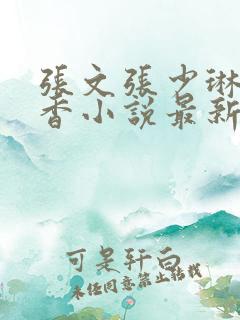 張文張少琳
香小說最新
可是轩向
未经同意禁止转载